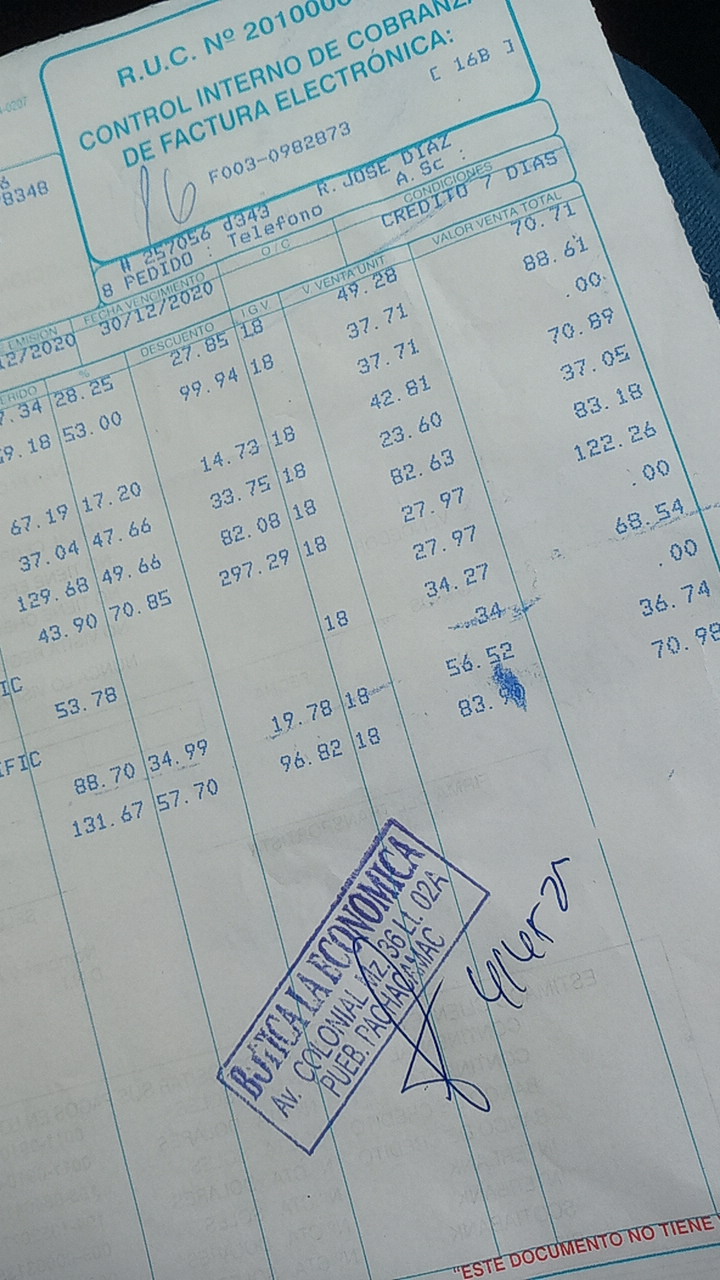 R.U.C. Nº 2010000
CONTROL INTERNO DE COBRANZA
DE FACTURA ELECTRÓNICA:
[ 16B ]
F003-0982873
16
-0207
8348
# 257056 d343 R. JOSE DIAZ
8 PEDIDO : Telefono A. Sc :
EMISIÓN FECHA VENCIMIENTO O / C CONDICIONES
12/2020 30/12/2020 CREDITO 7 DIAS
% DESCUENTO I.G.V. V. VENTA UNIT. VALOR VENTA TOTAL
7.34 28.25 27.85 18 49.28 70.71
9.18 53.00 99.94 18 37.71 88.61
37.71 .00
67.19 17.20 14.73 18 42.81 70.89
37.04 47.66 33.75 18 23.60 37.05
129.68 49.66 82.08 18 82.63 83.18
43.90 70.85 297.29 18 27.97 122.26
IC 27.97 .00
53.78 18 34.27 68.54
FIC .34 .00
88.70 34.99 19.78 18 56.52 36.74
131.67 57.70 96.82 18 83. 70.98
BOTICA LA ECONOMICA
Av. COLONIAL Mz. 36 Lt. 02A
PUEB. PACHACAMAC
"ESTE DOCUMENTO NO TIENE